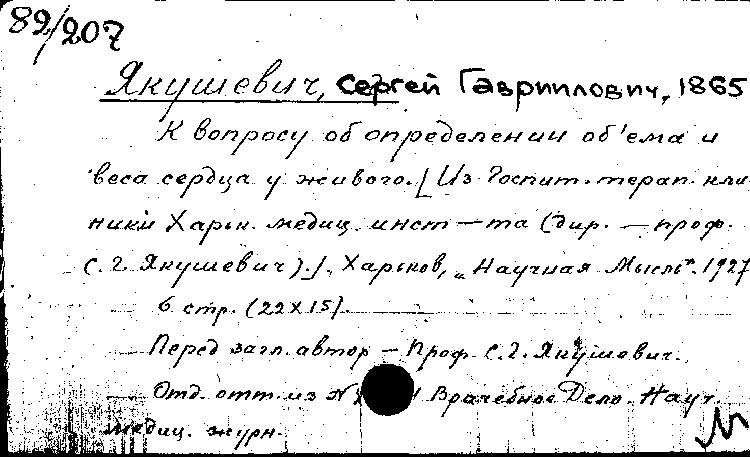 82/207
Якушевич, Сергей Гавриилович, 1865
К вопросу об определении об'ема и
веса сердца у живого. [Из Госпит. терап. кли
ники Харьк. медиц. инст-та (дир. - проф.
С. Г. Якушевич).]. Харьков, „Научная Мысль". 1927
6 стр. (22х15).
Перед загл. автор - Проф. С. Г. Якушевич.
Отд. отт. из Врачебное Дело. Науч.
медиц. журн.